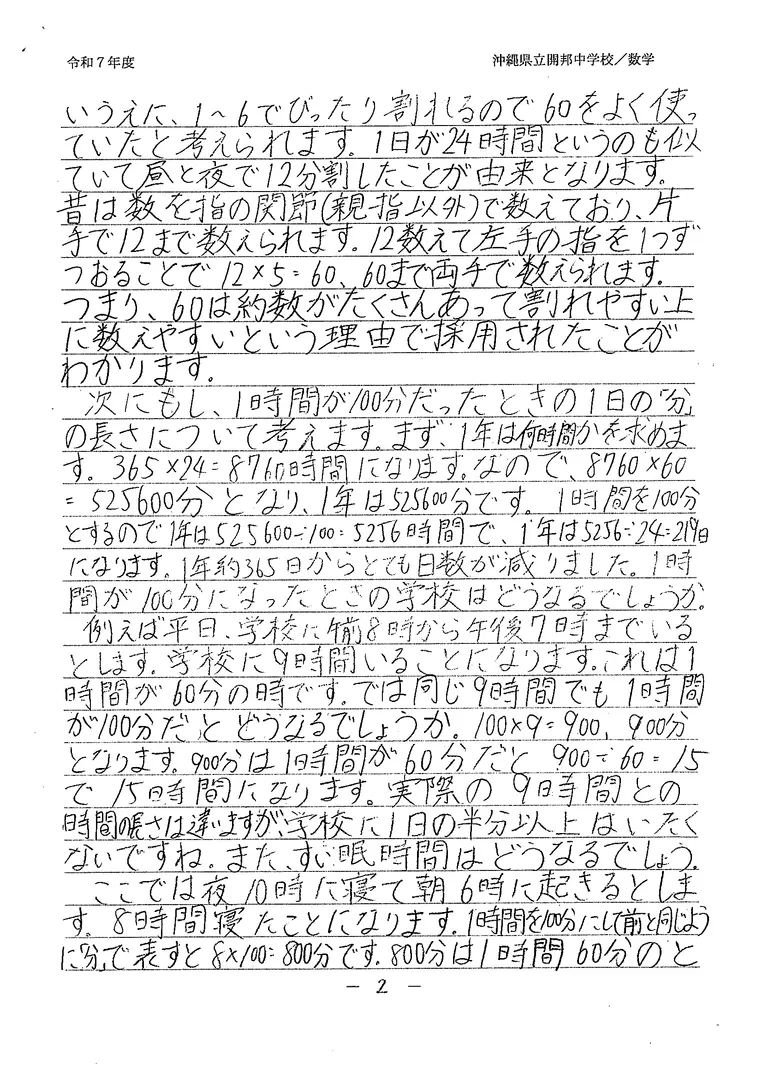 令和7年度
沖縄県立開邦中学校／数学
いうえに、1～6でぴったり割れるので60をよく使っ
ていたと考えられます。1日が24時間というのも似
ていて昼と夜で12分割したことが由来となります。
昔は数を指の関節(親指以外)で数えており、片
手で12まで数えられます。12数えて左手の指を1つず
つおることで12×5=60、60まで両手で数えられます。
つまり、60は約数がたくさんあって割れやすい上
に数えやすいという理由で採用されたことが
わかります。
次にもし、1時間が100分だったときの1日の「分」
の長さについて考えます。まず、1年は何時間かを求めま
す。365×24=8760時間になります。なので、8760×60
=525600分となり、1年は525600分です。1時間を100分
とするので1年は525600÷100=5256時間で、1年は5256÷24=219日
になります。1年約365日からとても日数が減りました。1時
間が100分になったときの学校はどうなるでしょうか。
例えば平日、学校に午前8時から午後7時までいる
とします。学校に9時間いることになります。これは1
時間が60分の時です。では同じ9時間でも1時間
が100分だとどうなるでしょうか。100×9=900、900分
となります。900分は1時間が60分だと900÷60=15
で15時間になります。実際の9時間との
時間の長さは違いますが、学校に1日の半分以上はいたく
ないですね。また、すい眠時間はどうなるでしょう。
ここでは夜10時に寝て朝6時に起きるとしま
す。8時間寝たことになります。1時間を100分にして前と同じよう
に「分」で表すと8×100=800分です。800分は1時間60分のと
- 2 -